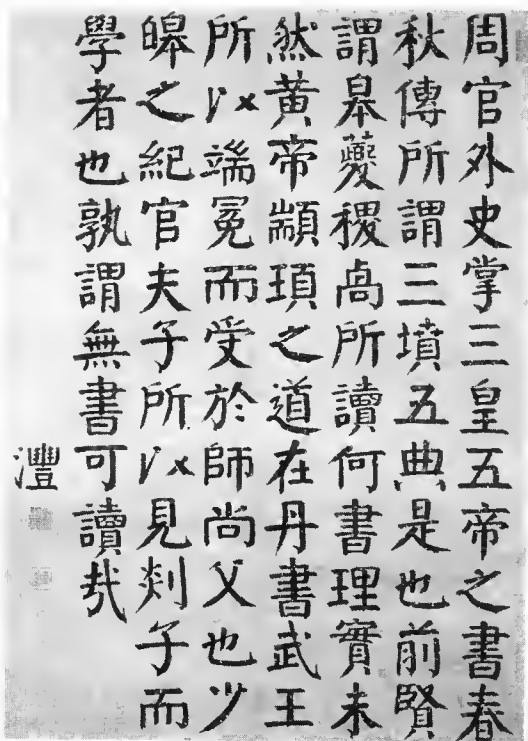 周官外史掌三皇五帝之書春
秋傳所謂三墳五典是也前賢
謂皋夔稷卨所讀何書理實未
然黃帝顓頊之道在丹書武王
所以端冕而受於師尚父也少
皞之紀官夫子所以見郯子而
學者也孰謂無書可讀哉
澧